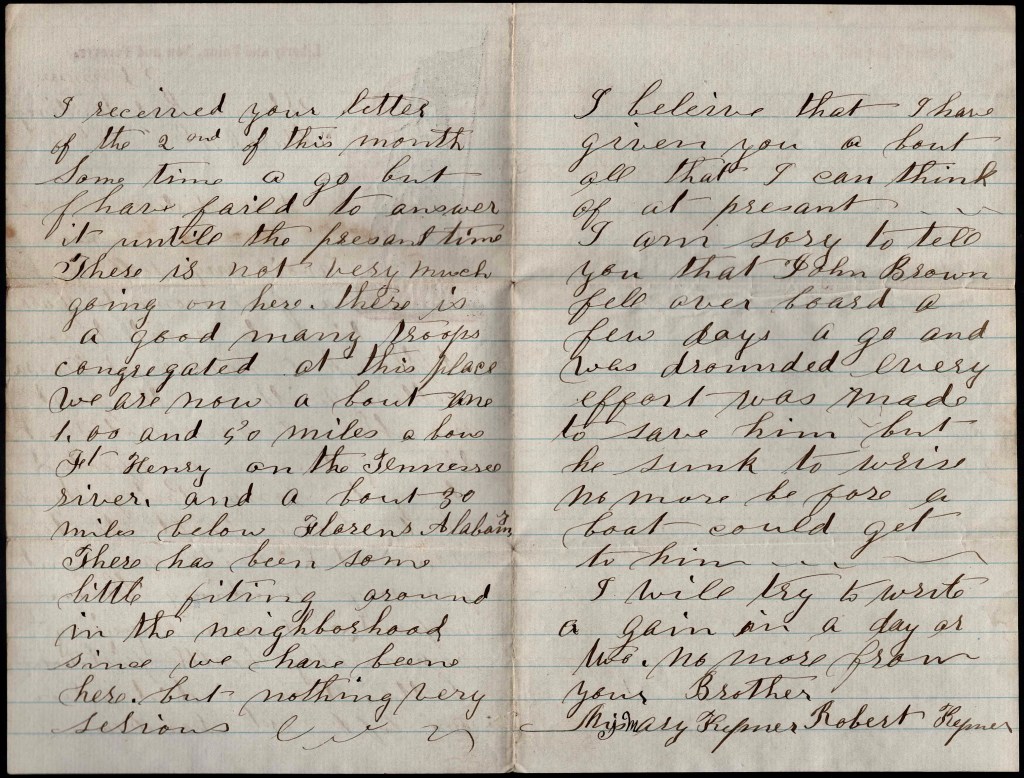 I received your letter
of the 2nd of this month
Some time a go but
I have faild to answer
it untill the presant time
There is not very much
going on here. there is
a good many troops
congregated at this place
We are now a bout one
1.00 and 50 miles above
Ft Henry on the Tennessee
river. and a bout 30
miles below Florens Alabam
There has been some
little fiting around
in the neighborhood
since we have been
here. but nothing very
serious
I beleive that I have
given you a bout
all that I can think
of at presant
I am sory to tell
you that John Brown
fell over board a
few days a go and
was drounded every
effort was made
to save him but
he sunk to wrise
no more be fore a
boat could get
to him
I will try to write
a gain in a day or
two. no more from
your Brother
Miss Mary Kepner Robert Kepner